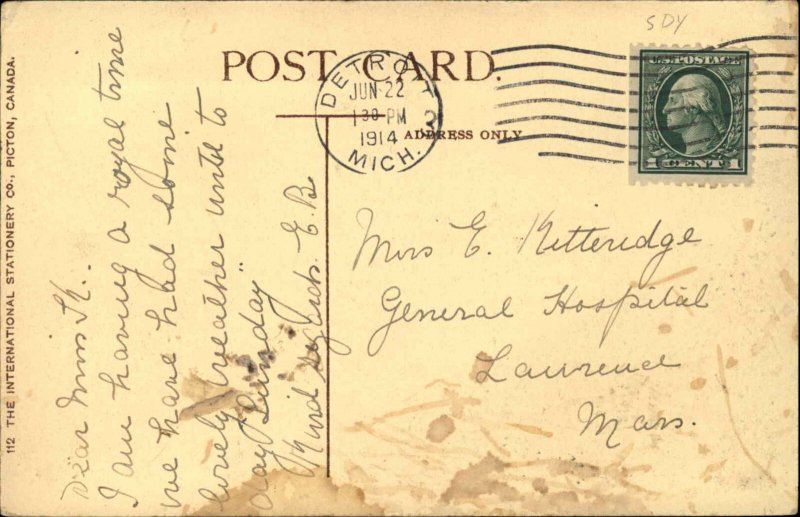 SDY
POST CARD.
DETROIT
JUN 22
1 30 PM
1914
MICH.
2
ADDRESS ONLY
U.S. POSTAGE
1 CENT 1
Miss E. Kitteridge
General Hospital
Lawrence
Mass.
Dear Miss K..
I am having a royal time
we have had some
lovely weather until to
day "Sunday"
Kind regards. E. B.
112 THE INTERNATIONAL STATIONERY CO., PICTON, CANADA.